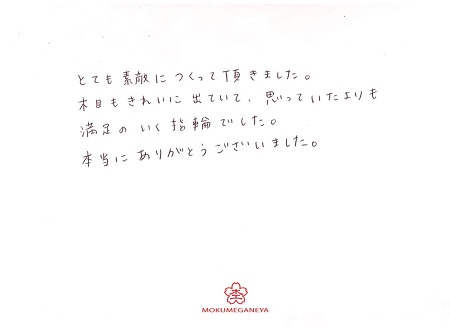 とても素敵につくって頂きました。
木目もきれいに出ていて、思っていたよりも
満足のいく指輪でした。
本当にありがとうございました。
MOKUMEGANEYA